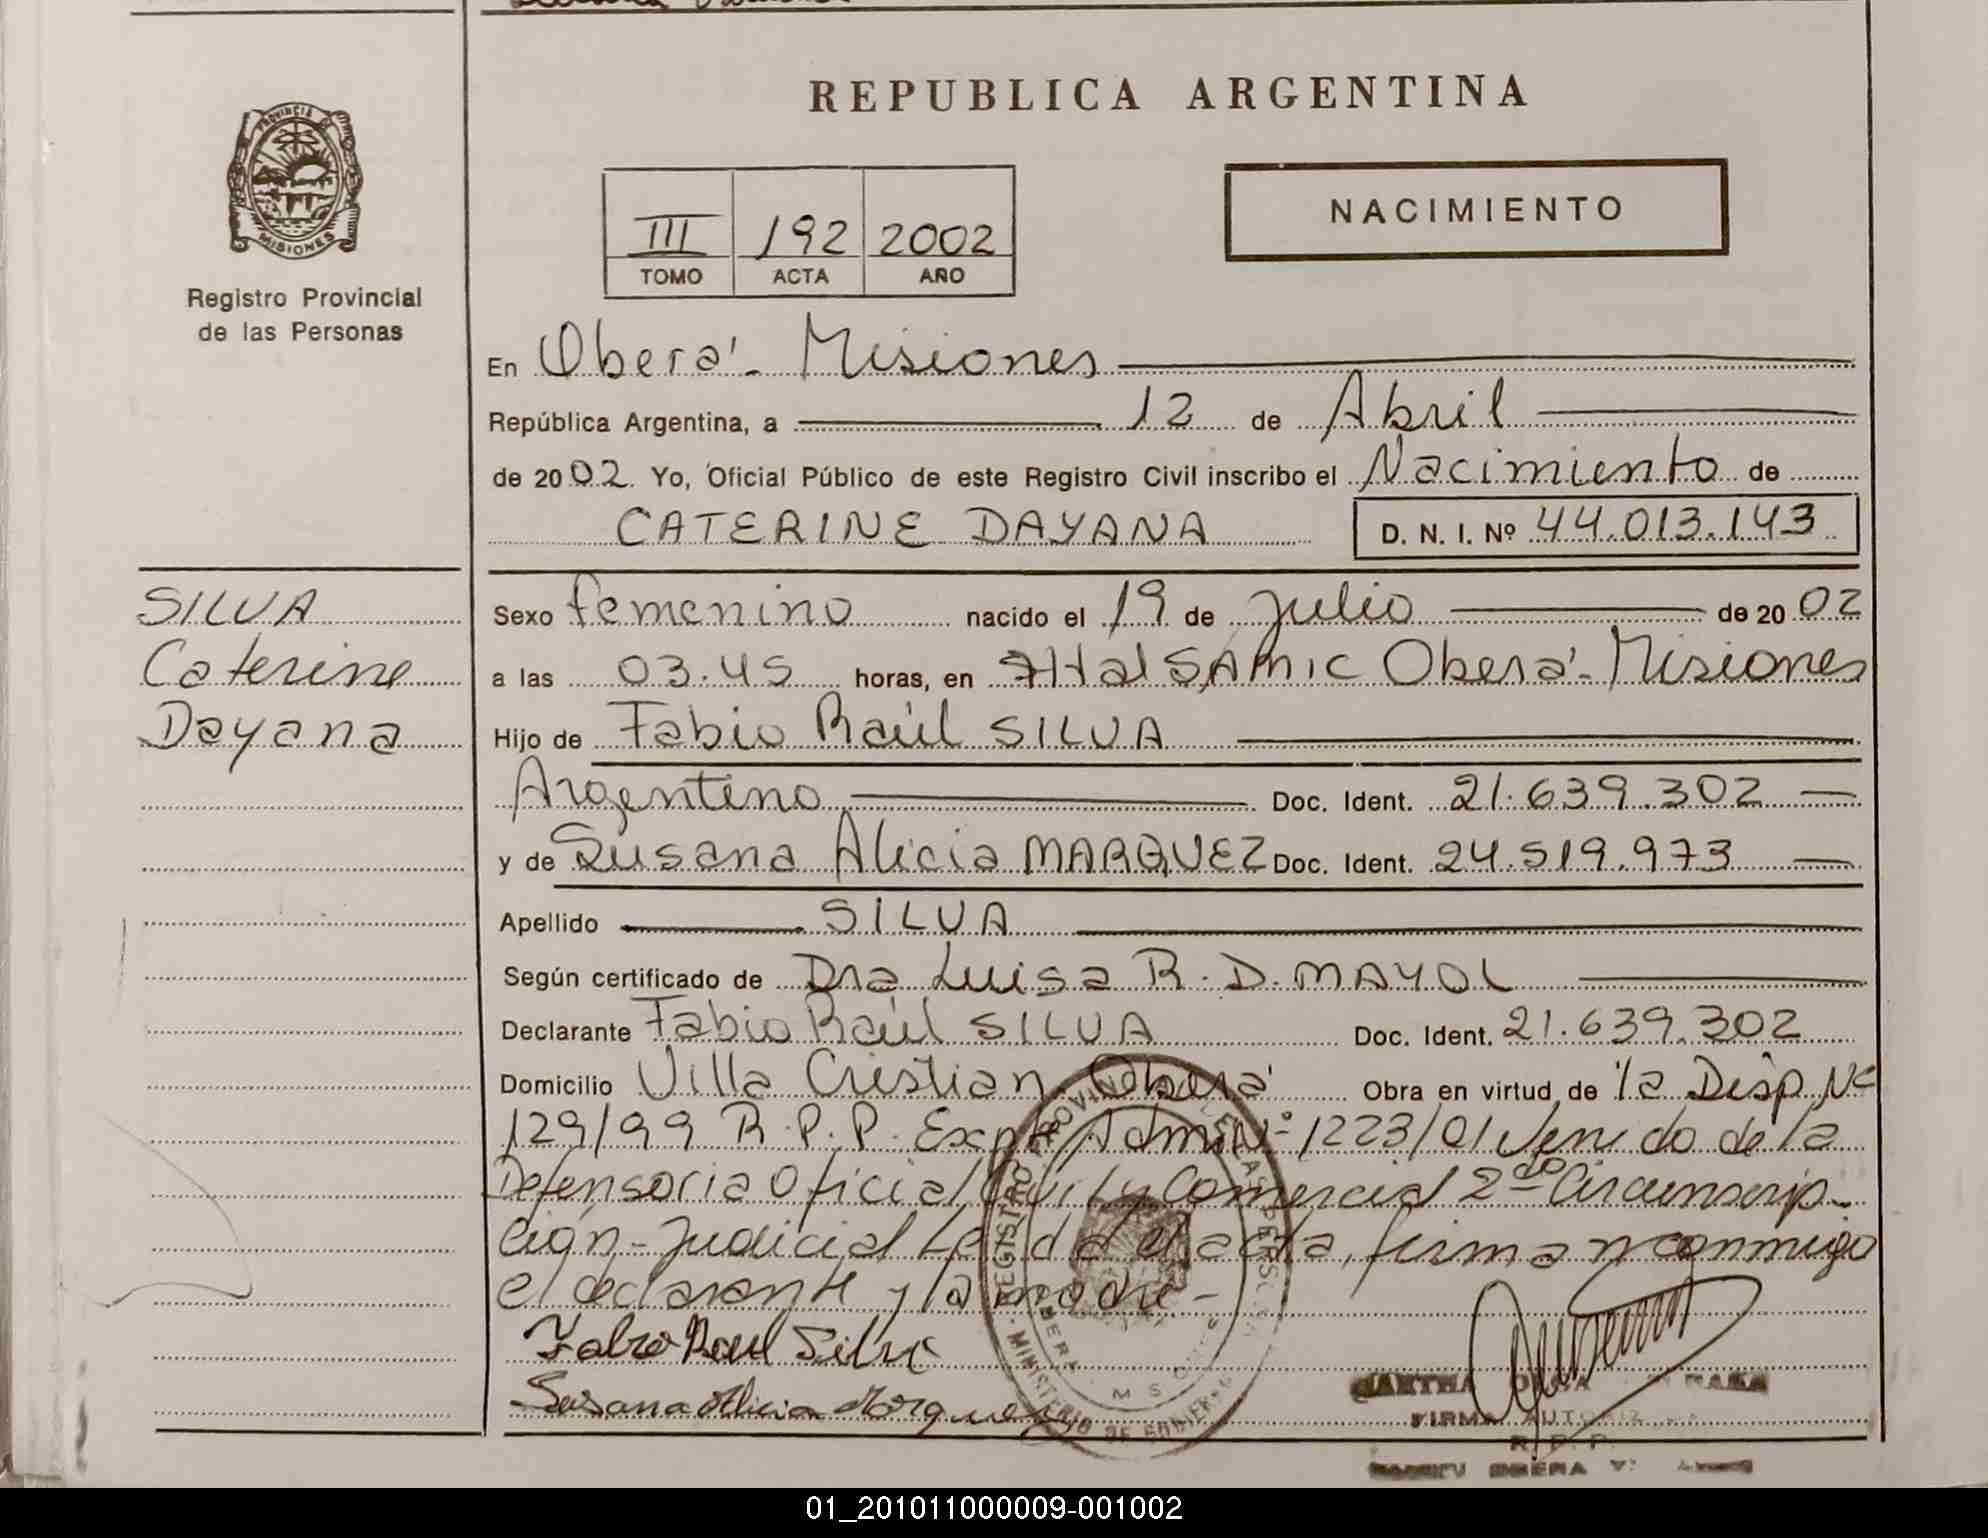 REPUBLICA ARGENTINA
PROVINCIA DE
MISIONES
Registro Provincial
de las Personas
NACIMIENTO
III 192 2002
TOMO ACTA AÑO
En Oberá - Misiones
República Argentina, a 12 de Abril
de 2002. Yo, Oficial Público de este Registro Civil inscribo el Nacimiento de
CATERINE DAYANA D. N. I. Nº 44.013.143
SILVA
Caterine
Dayana
Sexo femenino nacido el 19 de Julio de 2002
a las 03.45 horas, en SAMIC Oberá - Misiones
Hijo de Fabio Raúl SILVA
Argentino Doc. Ident. 21.639.302
y de Susana Alicia MARQUEZ Doc. Ident. 24.519.973
Apellido SILVA
Según certificado de Dra Luisa R. D. MAYOL
Declarante Fabio Raúl SILVA Doc. Ident. 21.639.302
Domicilio Villa Cristian. Oberá Obra en virtud de la Disp. Nº
129/99 R.P.P. Expte Adm. Nº 1223/01 Venido de la
Defensoria Oficial Civil y Comercial 2da Circunscrip-
ción - Judicial Leida el acta, firman conmigo
el declarante y la madre -
Fabio Raul Silva
Susana Alicia Marquez
FIRMA AUTORIZ
R. P. P.
OBERA
01_201011000009-001002